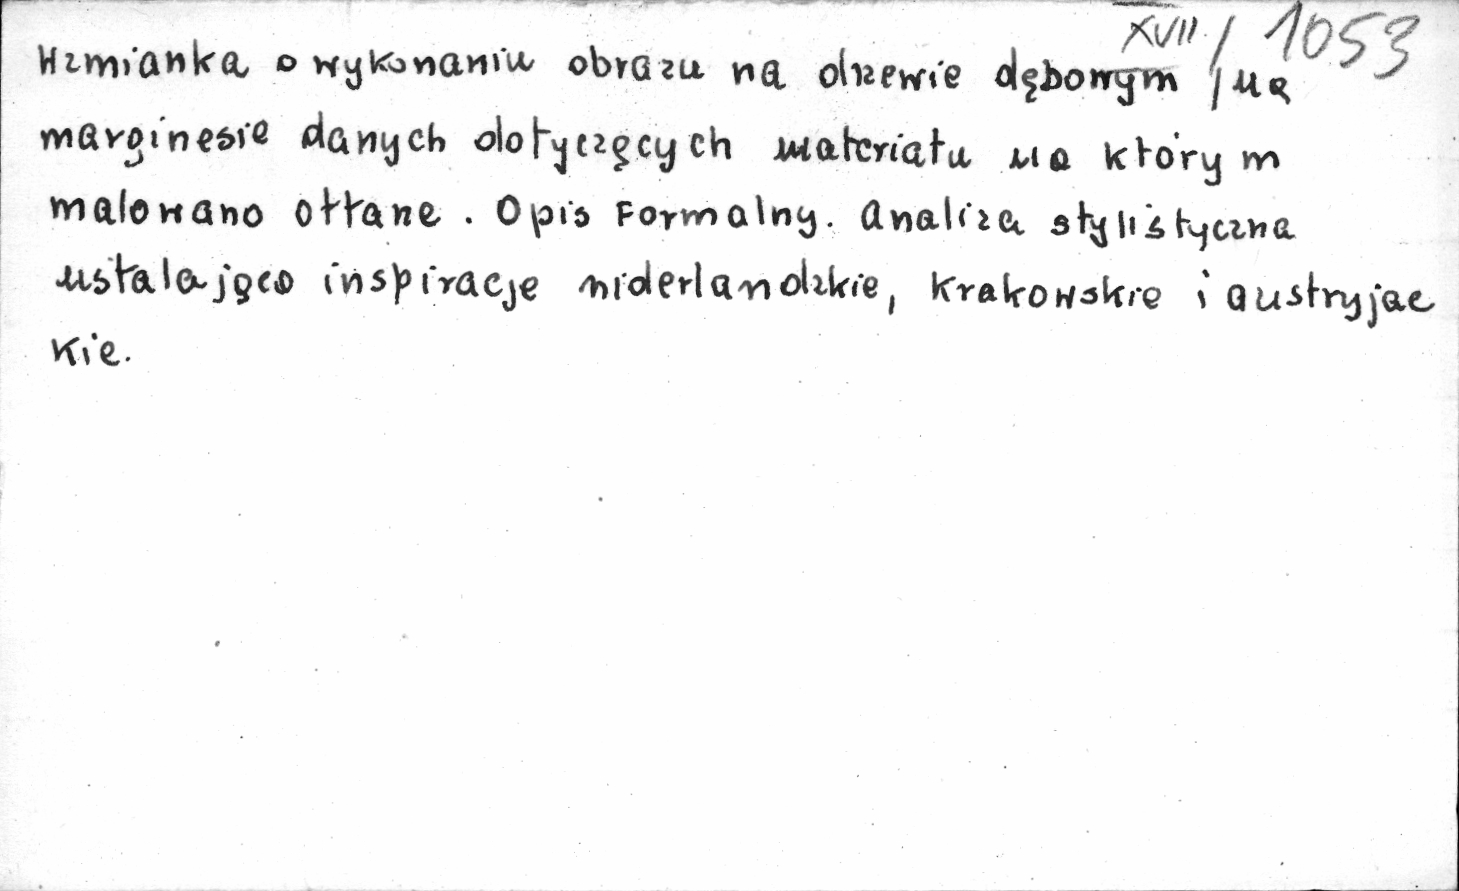 XVII / 1053
Wzmianka o wykonaniu obrazu na drzewie dębowym /na
marginesie danych dotyczących materiału na którym
malowano ołtarze. Opis formalny. Analiza stylistyczna
ustalająca inspiracje niderlandzkie, krakowskie i austryjac
kie.